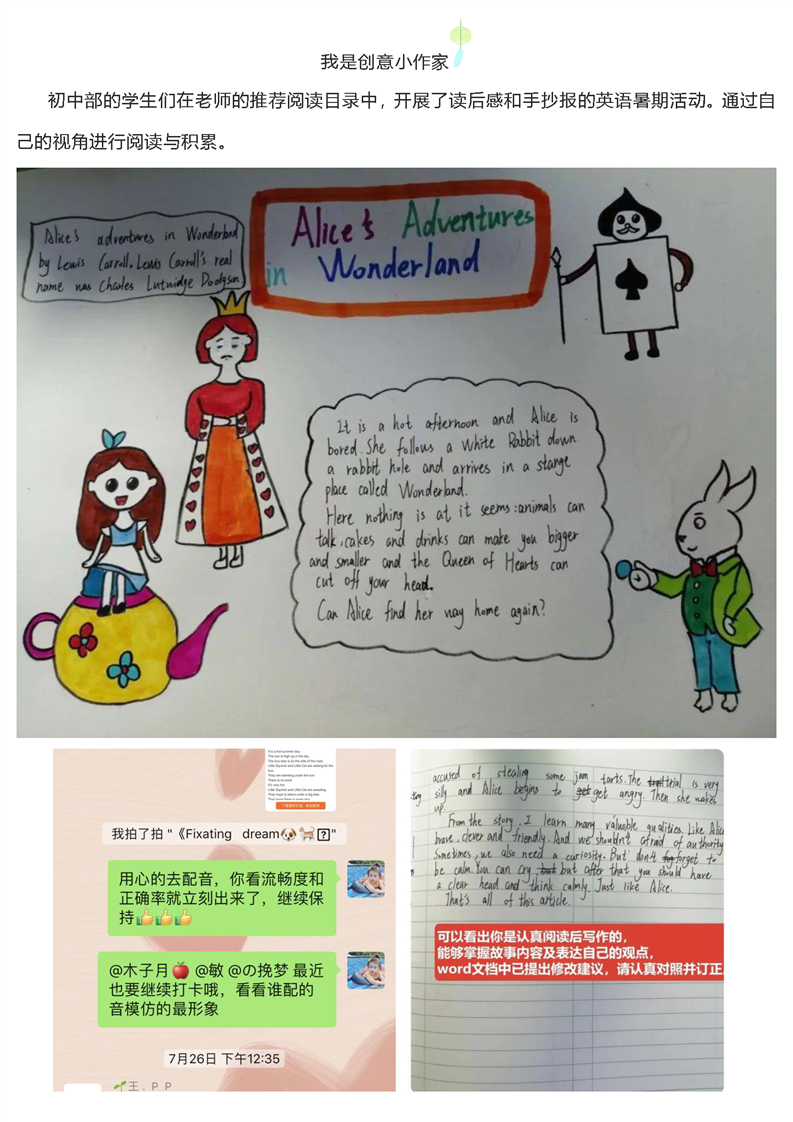 我是创意小作家
初中部的学生们在老师的推荐阅读目录中，开展了读后感和手抄报的英语暑期活动。通过自
己的视角进行阅读与积累。
Alice's adventures in Wonderland
by Lewis Carroll. Lewis Carroll's real
name was Charles Lutwidge Dodgson
Alice's Adventures
in Wonderland
It is a hot afternoon and Alice is
bored. She follows a White Rabbit down
a rabbit hole and arrives in a stange
place called Wonderland.
Here nothing is at it seems: animals can
talk, cakes and drinks can make you bigger
and smaller and the Queen of Hearts can
cut off your head.
Can Alice find her way home again?
It is a hot summer day.
The sun is high up in the sky.
The bus stop is by the side of the road.
Little Squirrel and Little Cat are waiting for the
bus.
They are standing under the sun.
There is no wind.
It's very hot.
Little Squirrel and Little Cat are sweating.
They hope to stand under a big tree.
我拍了拍 "《Fixating dream🐶🐕?"
用心的去配音，你看流畅度和
正确率就立刻出来了，继续保
持👍👍👍
@木子月🍎 @敏 @の挽梦 最近
也要继续打卡哦，看看谁配的
音模仿的最形象
7月26日 下午12:35
🌱王．P P
accused of stealing some jam tarts. The trial is very
silly and Alice begins to get angry. Then she wakes
up.
From the story, I learn many valuable qualities. Like Alice
brave, clever and friendly. And we shouldn't afraid of authority
Sometimes, we also need a curiosity. But don't forget to
be calm. You can cry but after that you should have
a clear head and think calmly. Just like Alice.
That's all of this article.
可以看出你是认真阅读后写作的，
能够掌握故事内容及表达自己的观点，
word文档中已提出修改建议，请认真对照并订正